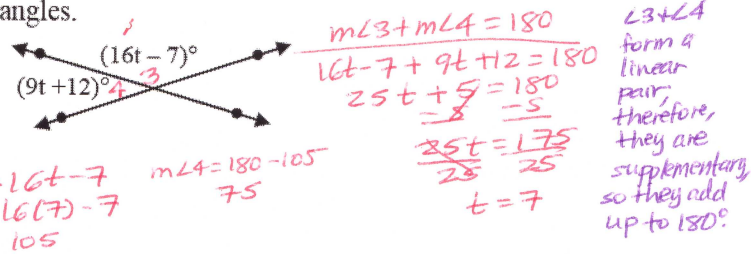 angles.
(16t – 7)°
3
(9t +12)°
4
m∠3+m∠4 = 180
16t-7 + 9t +12 = 180
25t + 5 = 180
-5 -5
25t = 175
25 25
t = 7
-16t-7
16(7)-7
105
m∠4=180-105
75
∠3+∠4
form a
linear
pair;
therefore,
they are
supplementary,
so they add
up to 180°.